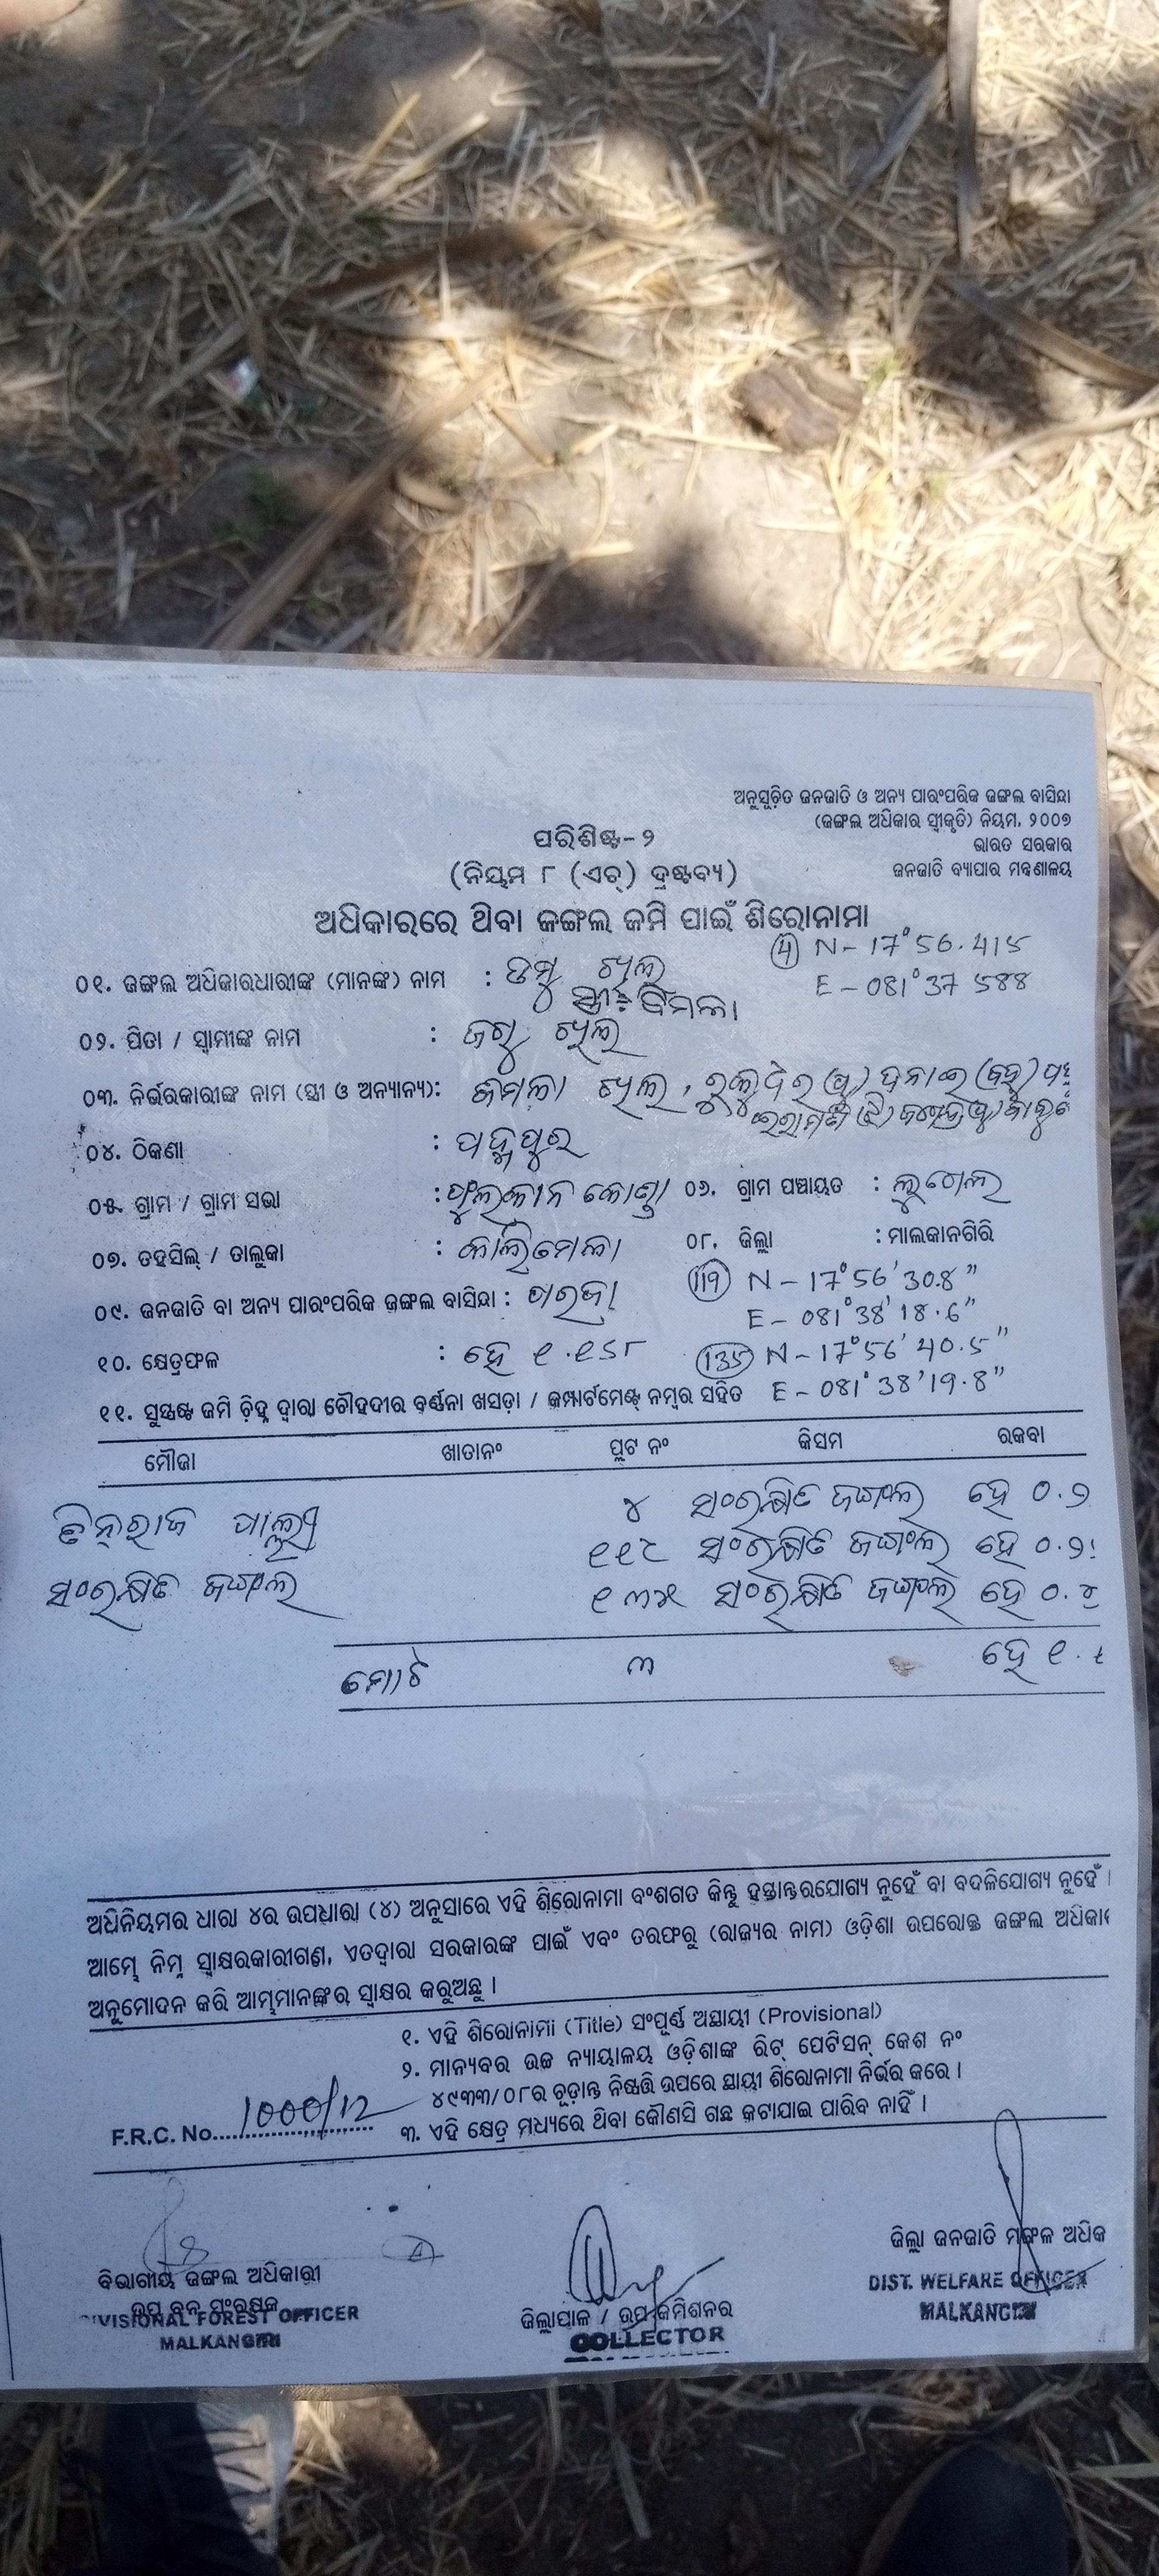 ଅନୁସୂଚିତ ଜନଜାତି ଓ ଅନ୍ୟ ପାରଂପରିକ ଜଙ୍ଗଲ ବାସିନ୍ଦା
(ଜଙ୍ଗଲ ଅଧିକାର ସ୍ୱୀକୃତି) ନିୟମ, ୨୦୦୭
ଭାରତ ସରକାର
ଜନଜାତି ବ୍ୟାପାର ମନ୍ତ୍ରଣାଳୟ
ପରିଶିଷ୍ଟ-୨
(ନିୟମ ୮ (ଏଚ୍) ଦ୍ରଷ୍ଟବ୍ୟ)
ଅଧିକାରରେ ଥିବା ଜଙ୍ଗଲ ଜମି ପାଇଁ ଶିରୋନାମା
4 N-17°56.415
E-081°37 588
୦୧. ଜଙ୍ଗଲ ଅଧିକାରଧାରୀଙ୍କ (ମାନଙ୍କ) ନାମ :
ସ୍ତ୍ରୀ: ବିମଳା
୦୨. ପିତା / ସ୍ୱାମୀଙ୍କ ନାମ :
୦୩. ନିର୍ଭରକାରୀଙ୍କ ନାମ (ସ୍ତ୍ରୀ ଓ ଅନ୍ୟାନ୍ୟ):
୦୪. ଠିକଣା : ପଦ୍ମପୁର
୦୫. ଗ୍ରାମ / ଗ୍ରାମ ସଭା : ଫୁଲକାନ କୋଣ୍ଡା ୦୬. ଗ୍ରାମ ପଞ୍ଚାୟତ :
୦୭. ତହସିଲ୍ / ତାଲୁକା : କାଲିମେଳା ୦୮. ଜିଲ୍ଲା : ମାଲକାନଗିରି
119 N-17°56'30.8"
E-081°38'18.6"
୦୯. ଜନଜାତି ବା ଅନ୍ୟ ପାରଂପରିକ ଜଙ୍ଗଲ ବାସିନ୍ଦା : ପରଜା
୧୦. କ୍ଷେତ୍ରଫଳ : ହେ ୧.୧୬୮
135 N-17°56'40.5"
E-081°38'19.8"
୧୧. ସୁସ୍ପଷ୍ଟ ଜମି ଚିହ୍ନ ଦ୍ୱାରା ଚୌହଦୀର ବର୍ଣ୍ଣନା ଖସଡ଼ା / କମ୍ପାର୍ଟମେଣ୍ଟ୍ ନମ୍ବର ସହିତ
ମୌଜା ଖାତାନଂ ପ୍ଲଟ ନଂ କିସମ ରକବା
ଚିନ୍ନରାଜ ପାଲ୍ଲୀ ୪ ସଂରକ୍ଷିତ ଜଙ୍ଗଲ ହେ ୦.୨
୧୧୯ ସଂରକ୍ଷିତ ଜଙ୍ଗଲ ହେ ୦.୨
ସଂରକ୍ଷିତ ଜଙ୍ଗଲ ୧୩୫ ସଂରକ୍ଷିତ ଜଙ୍ଗଲ ହେ ୦.
ମୋଟ ୩ ହେ ୧.
ଅଧିନିୟମର ଧାରା ୪ର ଉପଧାରା (୪) ଅନୁସାରେ ଏହି ଶିରୋନାମା ବଂଶଗତ କିନ୍ତୁ ହସ୍ତାନ୍ତରଯୋଗ୍ୟ ନୁହେଁ ବା ବଦଳିଯୋଗ୍ୟ ନୁହେଁ ।
ଆମ୍ଭେ ନିମ୍ନ ସ୍ୱାକ୍ଷରକାରୀଗଣ, ଏତଦ୍ୱାରା ସରକାରଙ୍କ ପାଇଁ ଏବଂ ତରଫରୁ (ରାଜ୍ୟର ନାମ) ଓଡ଼ିଶା ଉପରୋକ୍ତ ଜଙ୍ଗଲ ଅଧିକାର
ଅନୁମୋଦନ କରି ଆମ୍ଭମାନଙ୍କର ସ୍ୱାକ୍ଷର କରୁଅଛୁ ।
୧. ଏହି ଶିରୋନାମା (Title) ସଂପୂର୍ଣ୍ଣ ଅସ୍ଥାୟୀ (Provisional)
୨. ମାନ୍ୟବର ଉଚ୍ଚ ନ୍ୟାୟାଳୟ ଓଡ଼ିଶାଙ୍କ ରିଟ୍ ପେଟିସନ୍ କେଶ ନଂ
୪୯୩୩/୦୮ର ଚୂଡ଼ାନ୍ତ ନିଷ୍ପତ୍ତି ଉପରେ ସ୍ଥାୟୀ ଶିରୋନାମା ନିର୍ଭର କରେ ।
F.R.C. No. 1000/12
୩. ଏହି କ୍ଷେତ୍ର ମଧ୍ୟରେ ଥିବା କୌଣସି ଗଛ କଟାଯାଇ ପାରିବ ନାହିଁ ।
ବିଭାଗୀୟ ଜଙ୍ଗଲ ଅଧିକାରୀ
ଉପ ବନ ସଂରକ୍ଷକ
DIVISIONAL FOREST OFFICER
MALKANGIRI
ଜିଲ୍ଲାପାଳ / ଉପ କମିଶନର
COLLECTOR
ଜିଲ୍ଲା ଜନଜାତି ମଙ୍ଗଳ ଅଧିକ
DIST. WELFARE OFFICER
MALKANGIRI